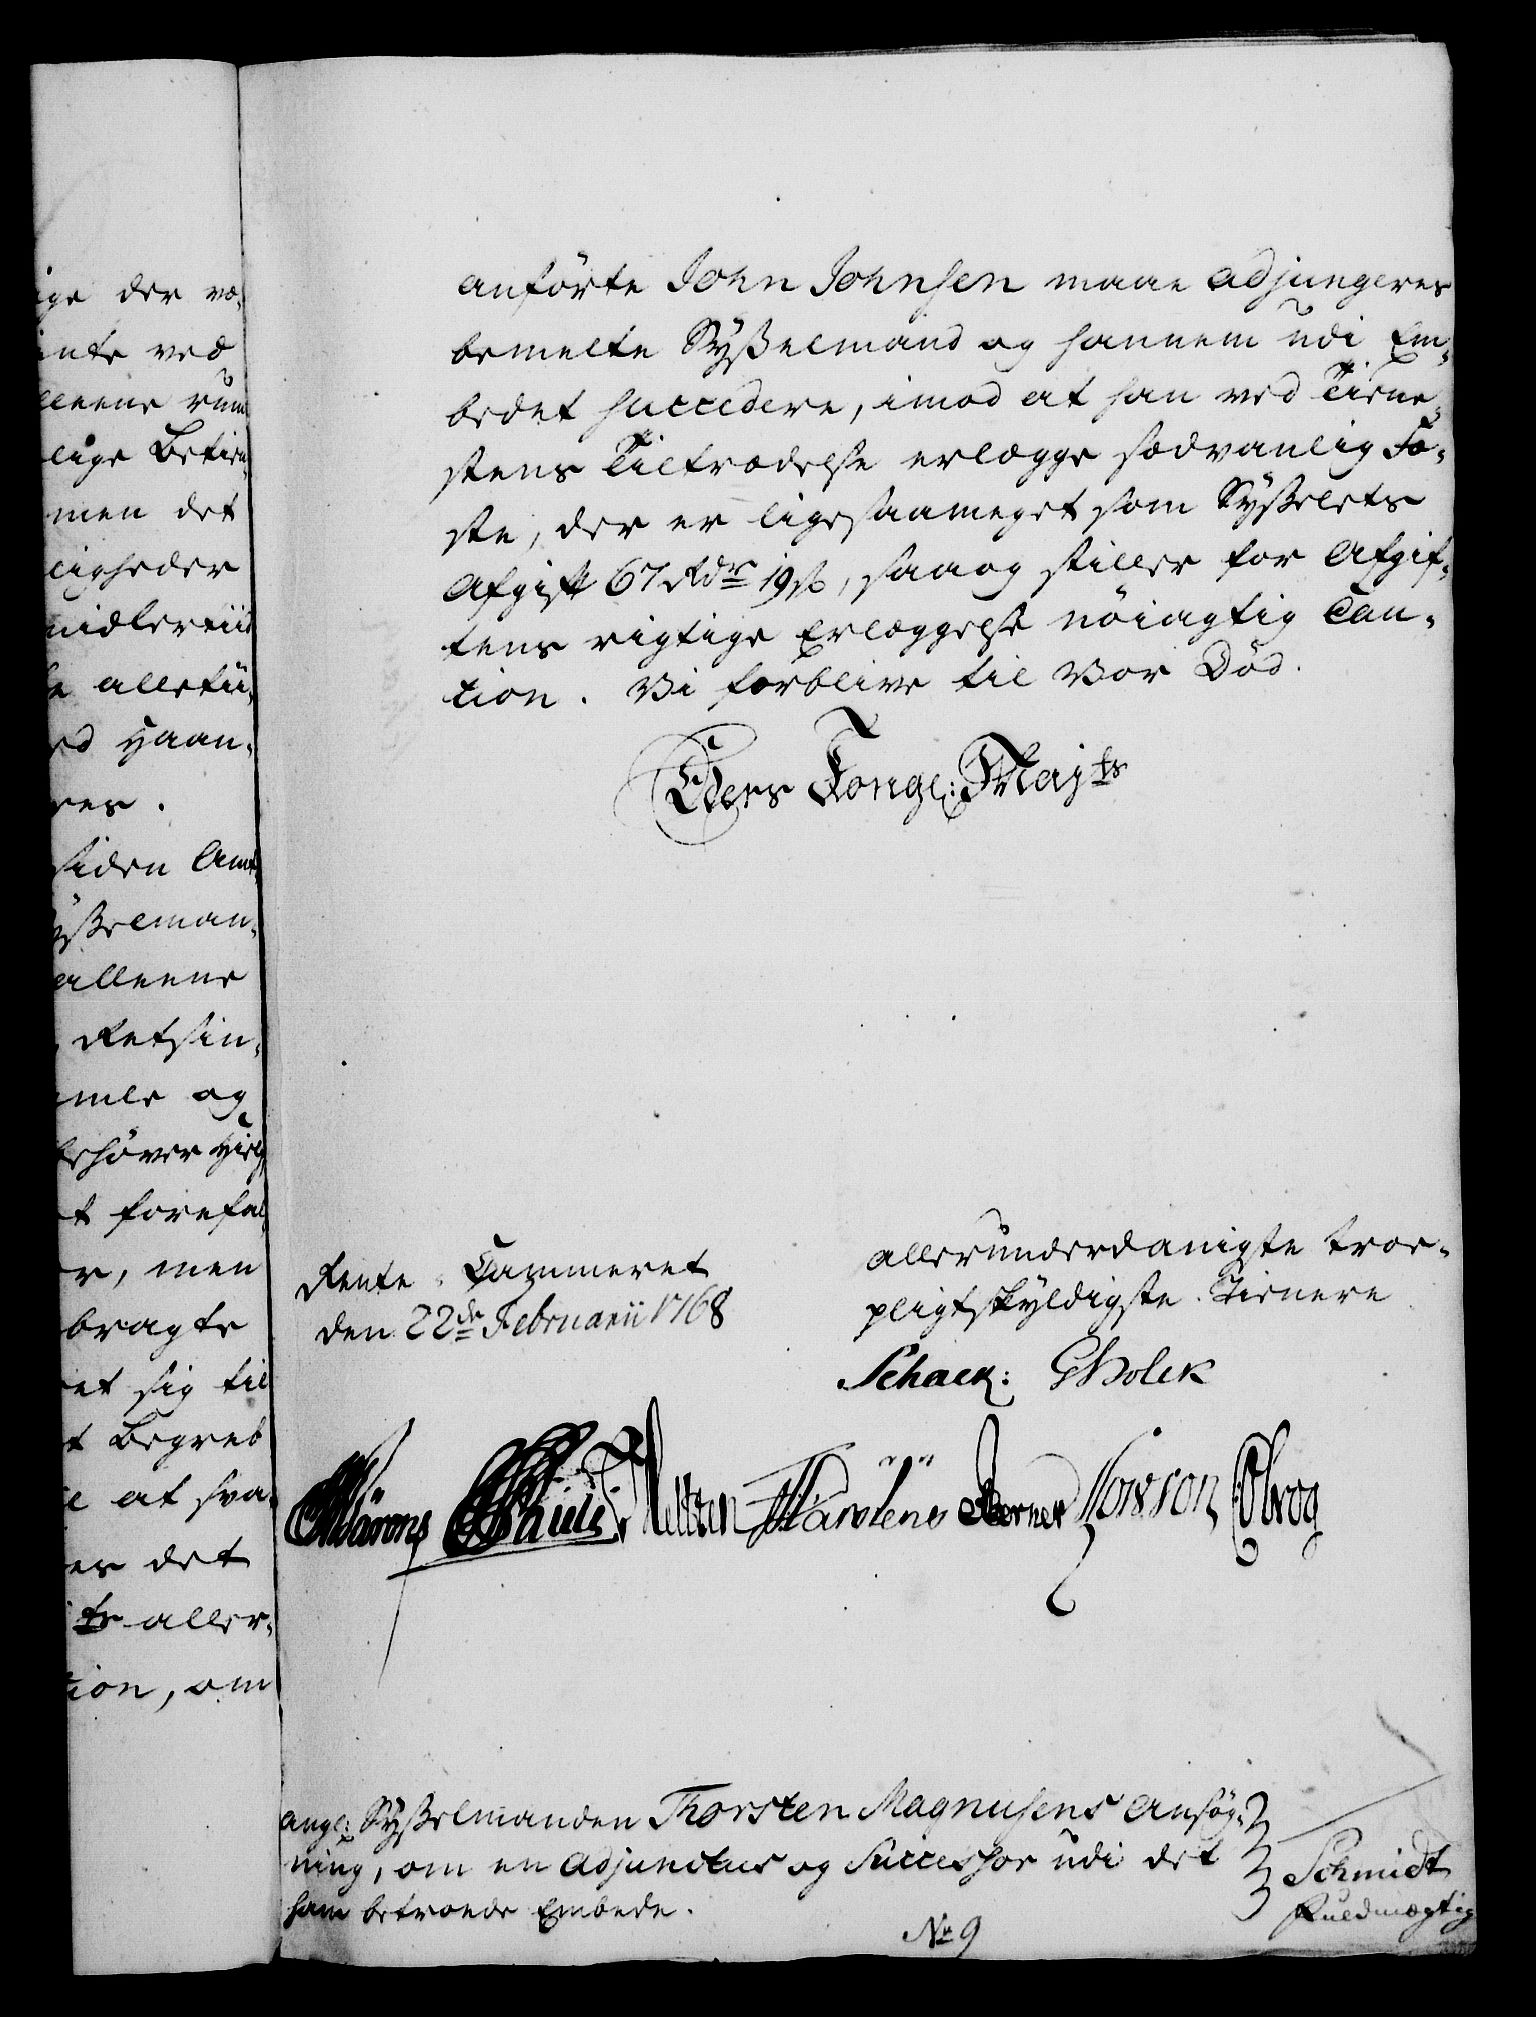 ige der væ-
ente ved
lleene rum
lige Betien-
men det
ligheder
midlertiid
alletii-
Haan-
res.
siden Amt-
ysselman-
alleene
Retsin-
mle og
behöver Hielp
t forefal-
r, men
bragte
et sig til
t Begreb
at sva-
es det
ts aller-
tion, om
anförte John Johnsen maae adjungeres
bemelte Sysselmand og hannem udi Em-
bedet succedere, imod at han ved Tiene-
stens Tiltrædelse erlægge sædvanlig Fæ-
ste, der er ligesaameget som Sysselets
Afgift 67 Rdr 19 s, saa og stiller for Afgif-
tens rigtige Erlæggelse nöiagtig Cau-
tion. Vi forblive til Vor Död.
Eders Kongl: Majts
allerunderdanigste troe-
pligtskyldigste Tienere
Rente-Cammeret
den 22de Februarii 1768
Schack: GHolck
Kowson
angl: Sysselmanden Thorsten Magnusens Ansög-
ning, om en Adjunctus og Successor udi det
ham betroede Embede.
Schmidt
Fuldmægtig
No 9